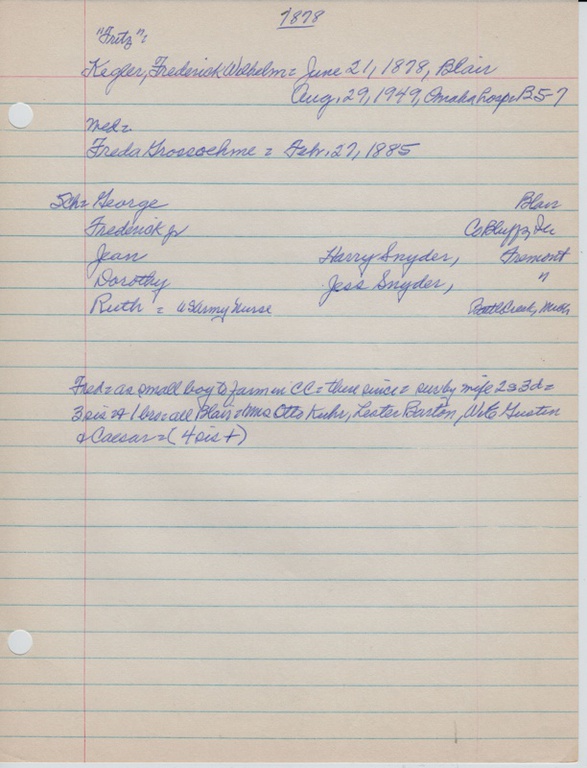 1878
"Fritz":
Kegler, Frederick Wilhelm = June 21, 1878, Blair
Aug, 29, 1949, Omaha hosp. B5-7
Med =
Freda Grossoehme = Febr. 27, 1885
5Ch = George Blair
Frederick jr Co Bluffs, Ia
Jean Harry Snyder, Fremont
Dorothy Jess Snyder, "
Ruth = US Army Nurse Battle Creek, Mich
Fred = as small boy to farm in CC = there since = surby wife 2s 3d =
3 sis & 1 bro = all Blair = Mrs Otto Kuhr, Lester Barton, WE Gustin
& Caesar = (4 sis +)